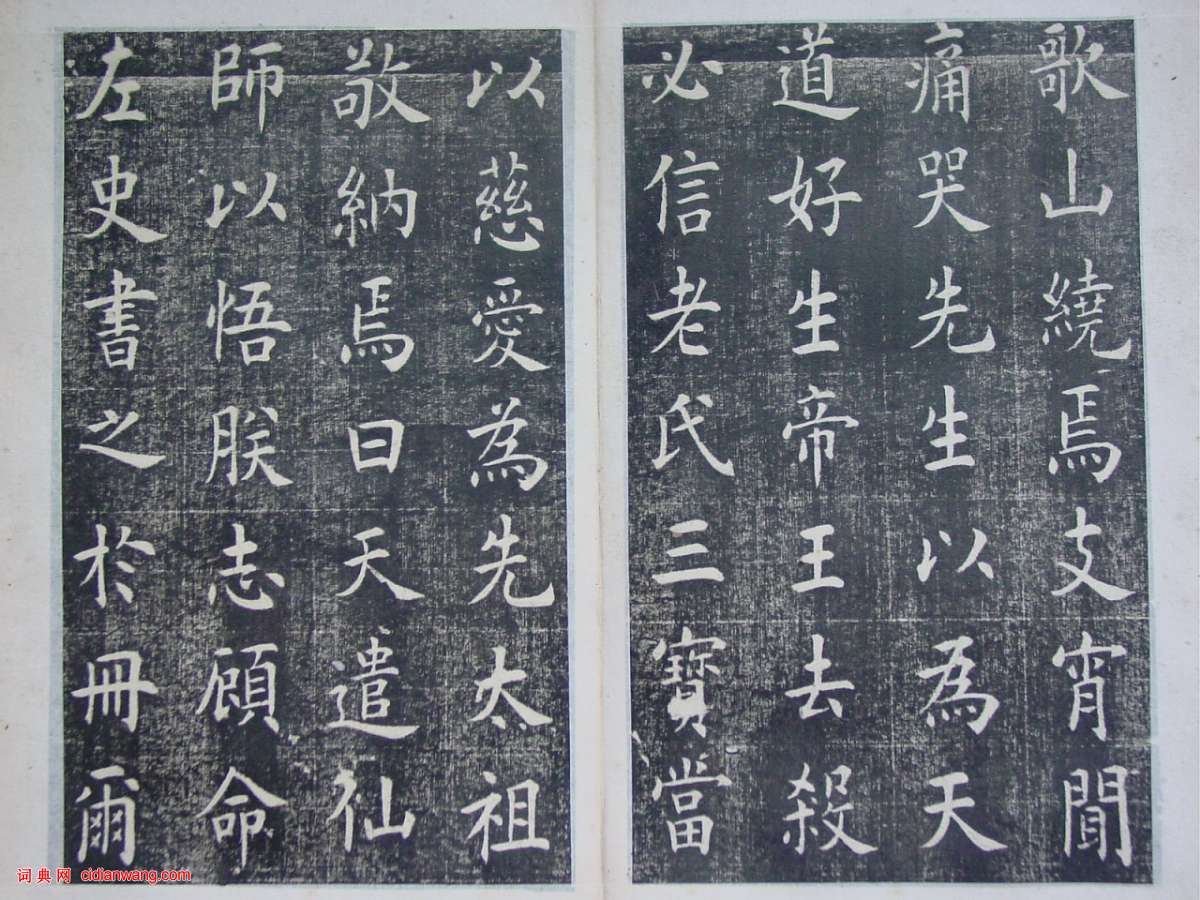 歌山繞焉支宵聞
痛哭先生以為天
道好生帝王去殺
必信老氏三寶當
以慈愛為先太祖
敬納焉曰天遣仙
師以悟朕志顧命
左史書之於冊爾
词典网 cidianwang.com